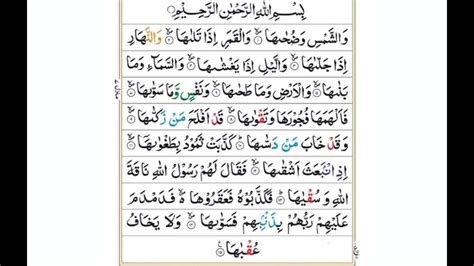 بِسْمِ اللهِ الرَّحْمٰنِ الرَّحِيْمِ
وَالشَّمْسِ وَضُحٰىهَا ۝ وَالْقَمَرِ اِذَا تَلٰىهَا ۝ وَالنَّهَارِ
اِذَا جَلّٰىهَا ۝ وَالَّيْلِ اِذَا يَغْشٰىهَا ۝ وَالسَّمَآءِ وَمَا
بَنٰىهَا ۝ وَالْاَرْضِ وَمَا طَحٰىهَا ۝ وَنَفْسٍ وَّمَا سَوّٰىهَا ۝
فَاَلْهَمَهَا فُجُوْرَهَا وَتَقْوٰىهَا ۝ قَدْ اَفْلَحَ مَنْ زَكّٰىهَا ۝
وَقَدْ خَابَ مَنْ دَسّٰىهَا ۝ كَذَّبَتْ ثَمُوْدُ بِطَغْوٰىهَا ۝
اِذِ انْۢبَعَثَ اَشْقٰىهَا ۝ فَقَالَ لَهُمْ رَسُوْلُ اللهِ نَاقَةَ
اللهِ وَسُقْيٰهَا ۝ فَكَذَّبُوْهُ فَعَقَرُوْهَا ۝ فَدَمْدَمَ
عَلَيْهِمْ رَبُّهُمْ بِذَنْۢبِهِمْ فَسَوّٰىهَا ۝ وَلَا يَخَافُ
عُقْبٰهَا ۝